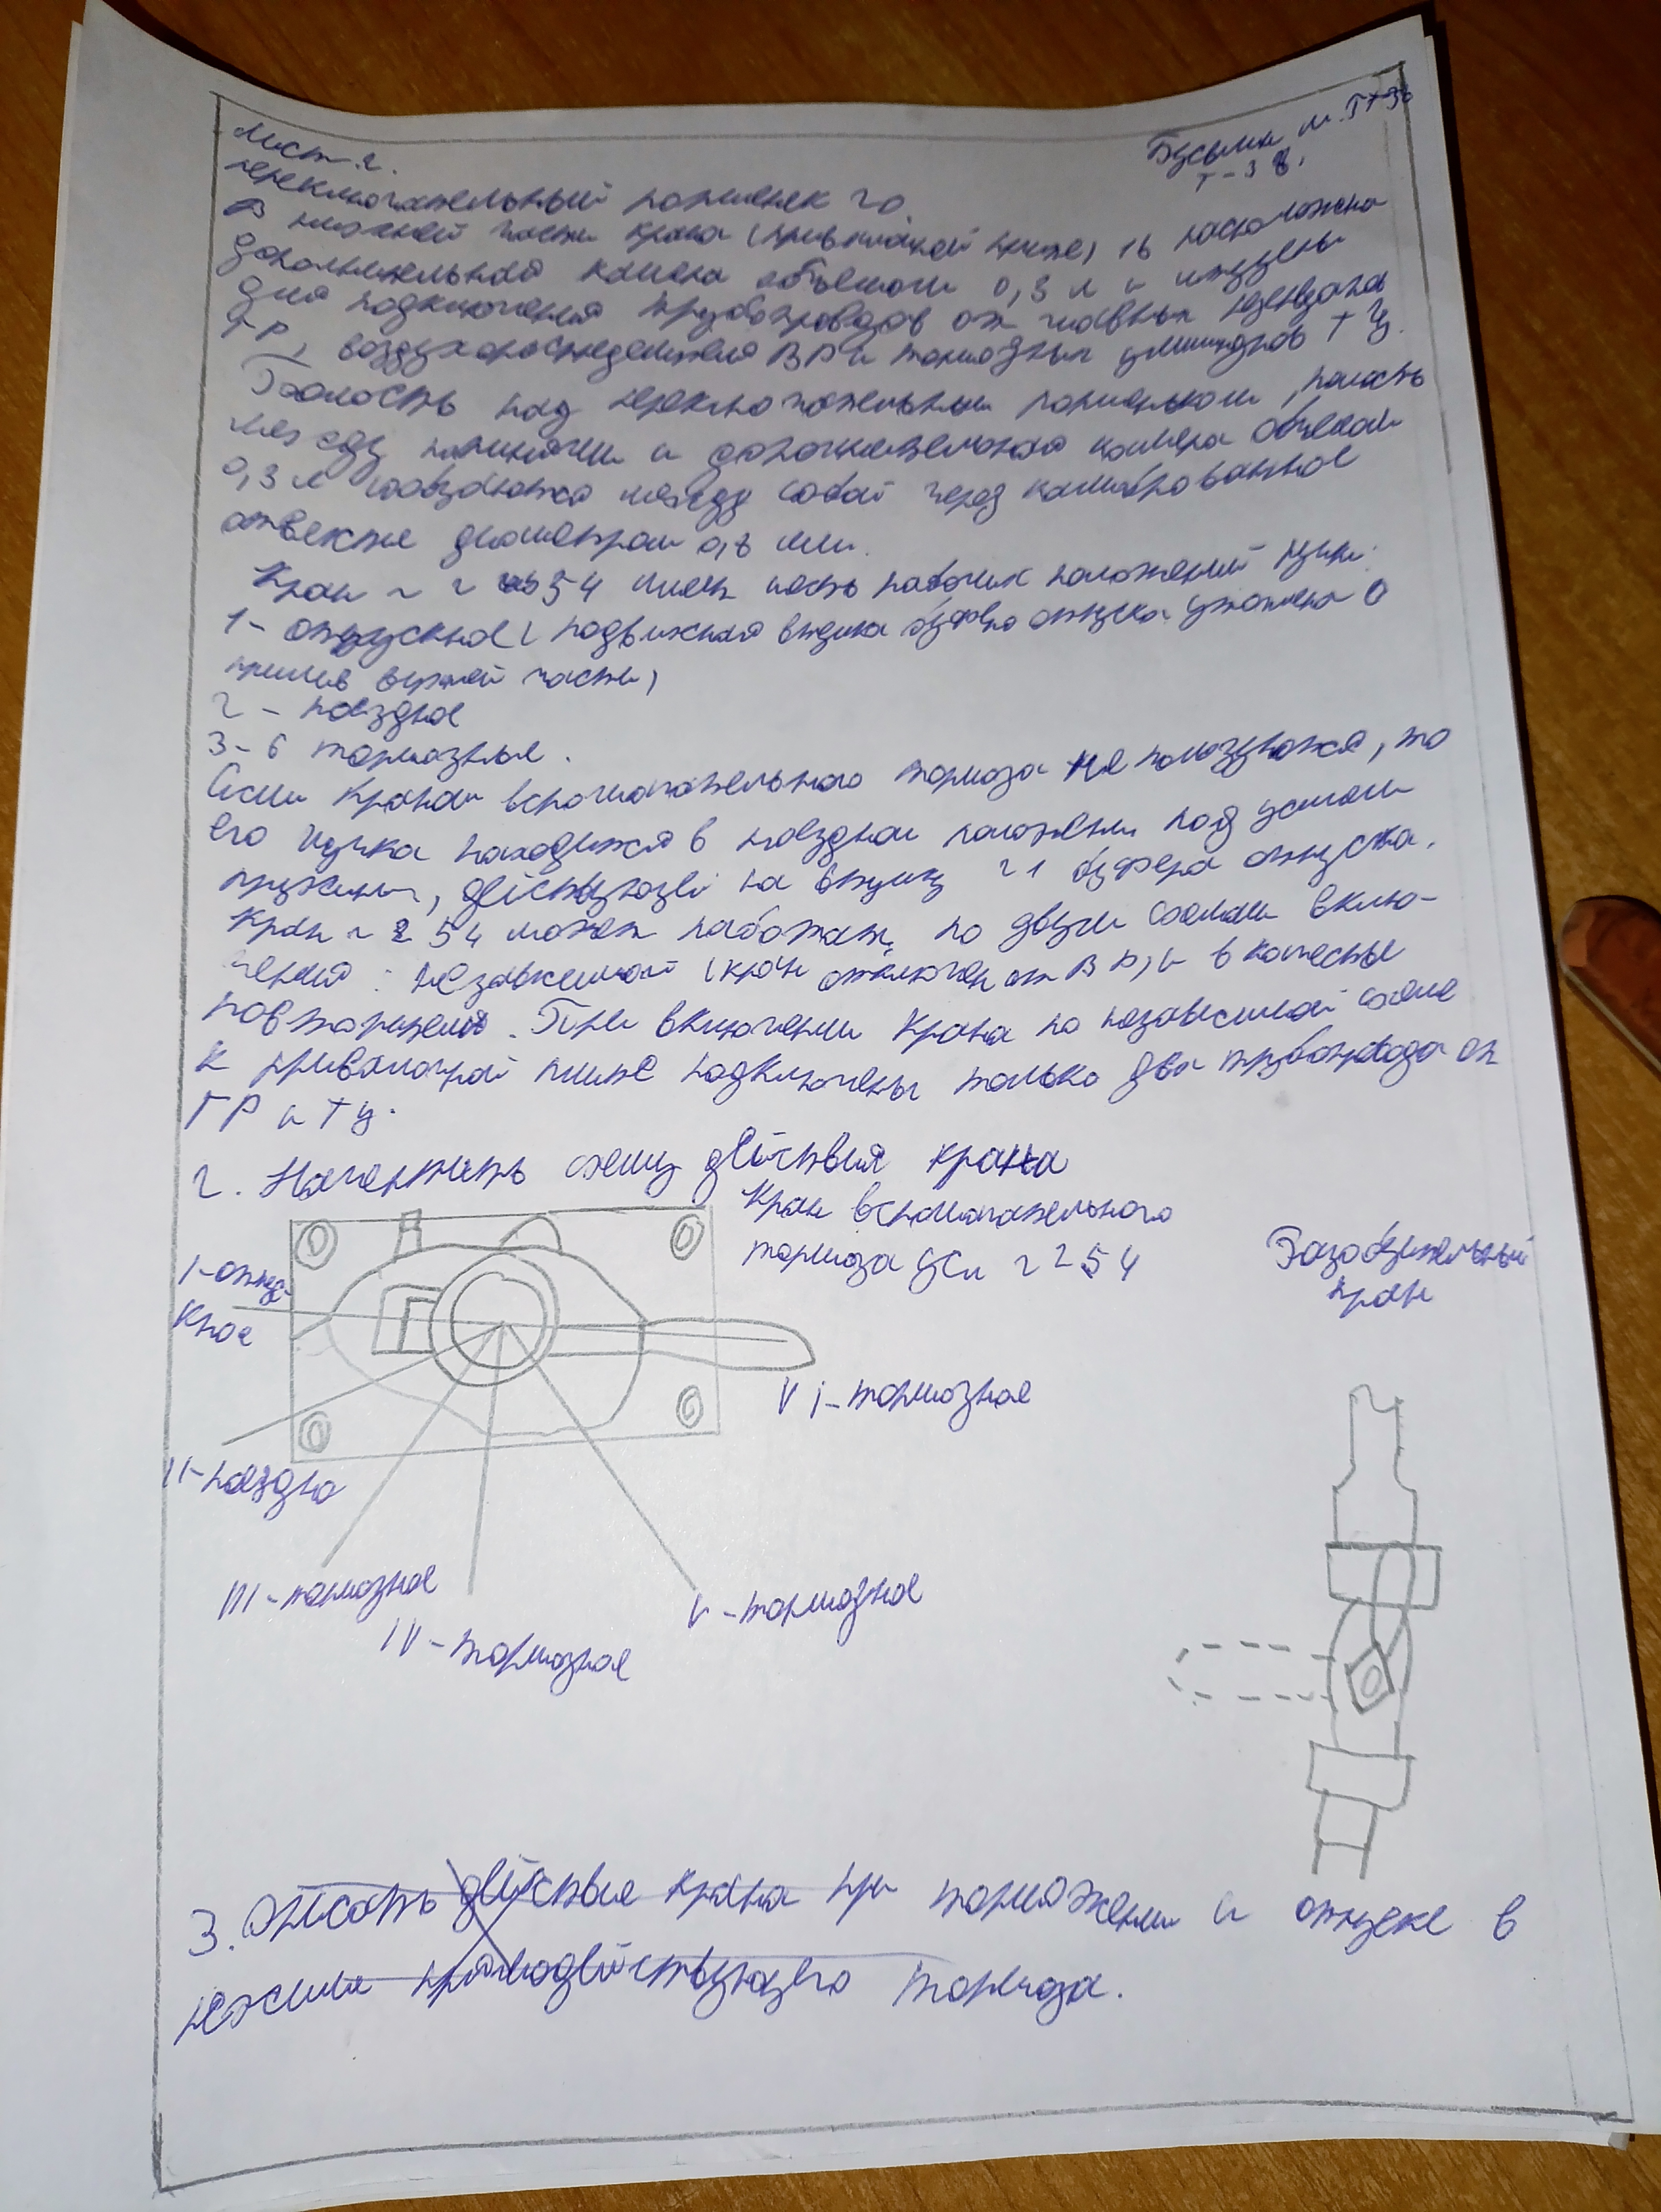 Лист 2.
переключательный поршенек 20.
В нижней части крана (привалочной плите) 16 расположена
дополнительная камера объемом 0,3 л и штуцеры
для подключения трубопроводов от главных резервуаров
ГР, воздухораспределителя ВР и тормозных цилиндров ТЦ.
Полость над переключательным поршеньком, полость
между поршнями и дополнительная камера объемом
0,3 л сообщаются между собой через калиброванное
отверстие диаметром 0,8 мм.
Кран 254 имеет шесть рабочих положений ручки:
1 - отпускное (подвижная втулка буфера отпуска утоплена в
прилив верхней части)
2 - поездное
3-6 тормозные.
Если краном вспомогательного тормоза не пользуются, то
его ручка находится в поездном положении под усилием
пружины, действующей на втулку 21 буфера отпуска.
Кран 254 может работать по двум схемам вклю-
чения: независимой (кран отключен от ВР) и в качестве
повторителя. При включении крана по независимой схеме
к привалочной плите подключены только два трубопровода от
ГР и ТЦ.
2. Начертить схему действия крана
Кран вспомогательного
тормоза усл 254
Разобщительный
кран
I-отпус-
кное
VI-тормозное
II-поездно
III-тормозное
V-тормозное
IV-тормозное
3. Описать действие крана при торможении и отпуске в
режиме прямодействующего тормоза.